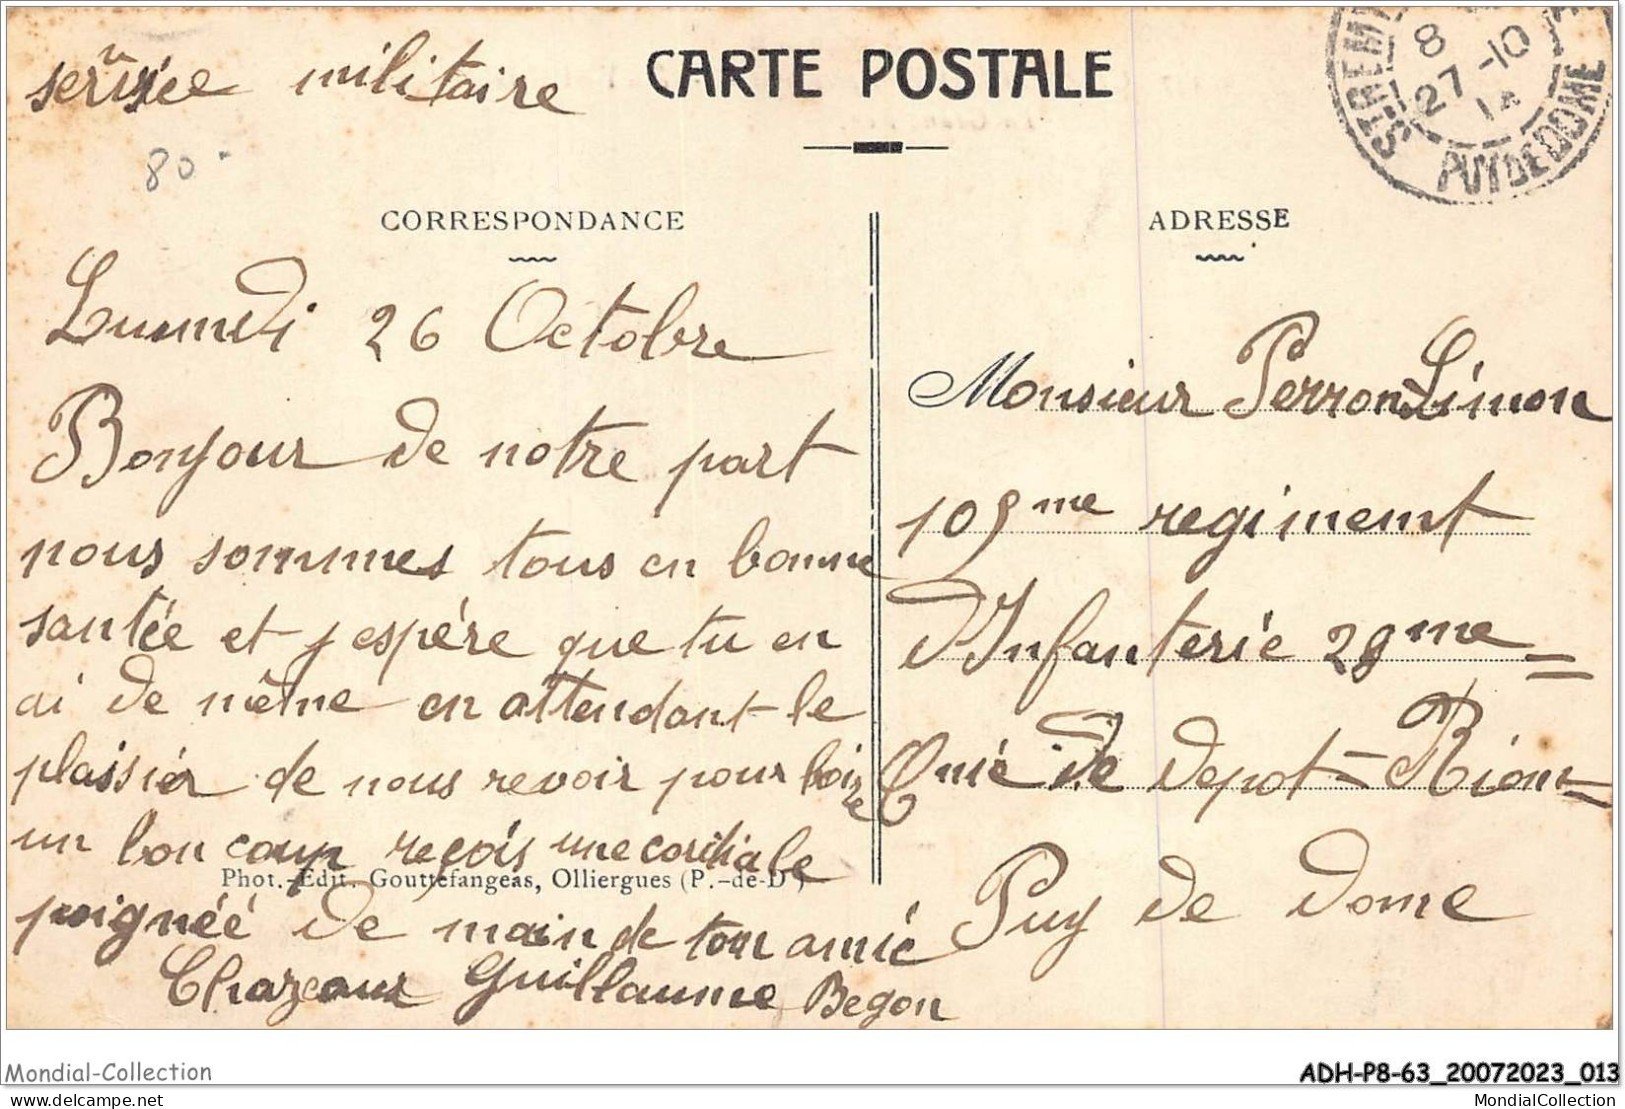 service militaire
CARTE POSTALE
ST-REMY
8
27-10
14
PUY DE DOME
80-
CORRESPONDANCE
ADRESSE
Lumdi 26 Octobre
Bonjour de notre part
nous sommes tous en bonne
santée et j espére que tu en
ai de même en attendant le
plaisir de nous revoir pour boire
un bon coup reçois une cordiale
poignéé de main de ton amié
Chazeaux Guillaume Begon
Phot.-Edit. Gouttefangeas, Olliergues (P.-de-D)
Monsieur Perron Simon
105me regiment
d'Infanterie 29me
Cnié de depot = Riom
Puy de dome
Mondial-Collection
ADH-P8-63_20072023_013
delcampe.net
MondialCollection